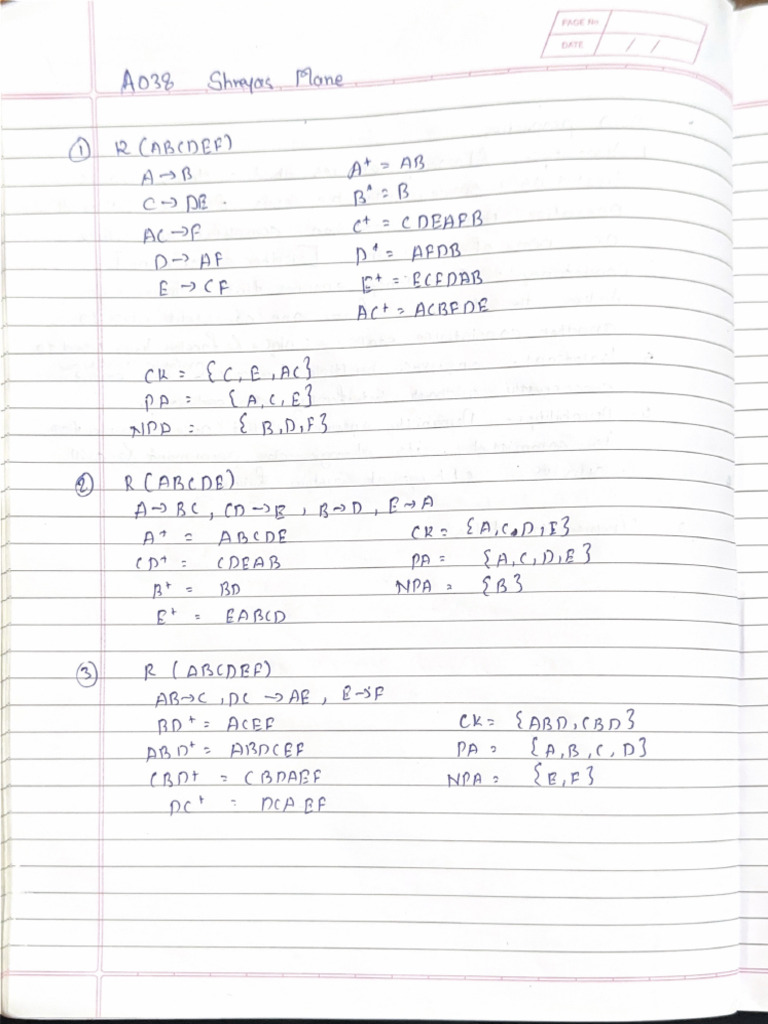 PAGE No.
DATE / /
A038 Shreyas Mane
① R (ABCDEF)
A→B A⁺ = AB
C→DE. B⁺ = B
AC→F C⁺ = CDEAFB
D→AF D⁺ = AFDB
E→CF E⁺ = ECFDAB
AC⁺ = ACBFDE
CK = {C, E, AC}
PA = {A, C, E}
NPA = {B, D, F}
② R (ABCDE)
A→BC, CD→E, B→D, E→A
A⁺ = ABCDE CK = {A, C, D, E}
CD⁺ = CDEAB PA = {A, C, D, E}
B⁺ = BD NPA = {B}
E⁺ = EABCD
③ R (ABCDEF)
AB→C, DC→AE, E→F
BD⁺ = ACEF CK = {ABD, CBD}
ABD⁺ = ABDCEF PA = {A, B, C, D}
CBD⁺ = CBDAEF NPA = {E, F}
DC⁺ = DCAEF